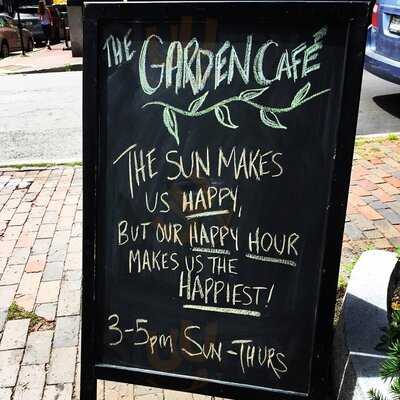 THE GARDEN CAFÉ
THE SUN MAKES
US HAPPY,
BUT OUR HAPPY HOUR
MAKES US THE
HAPPIEST!
3-5pm SUN-THURS